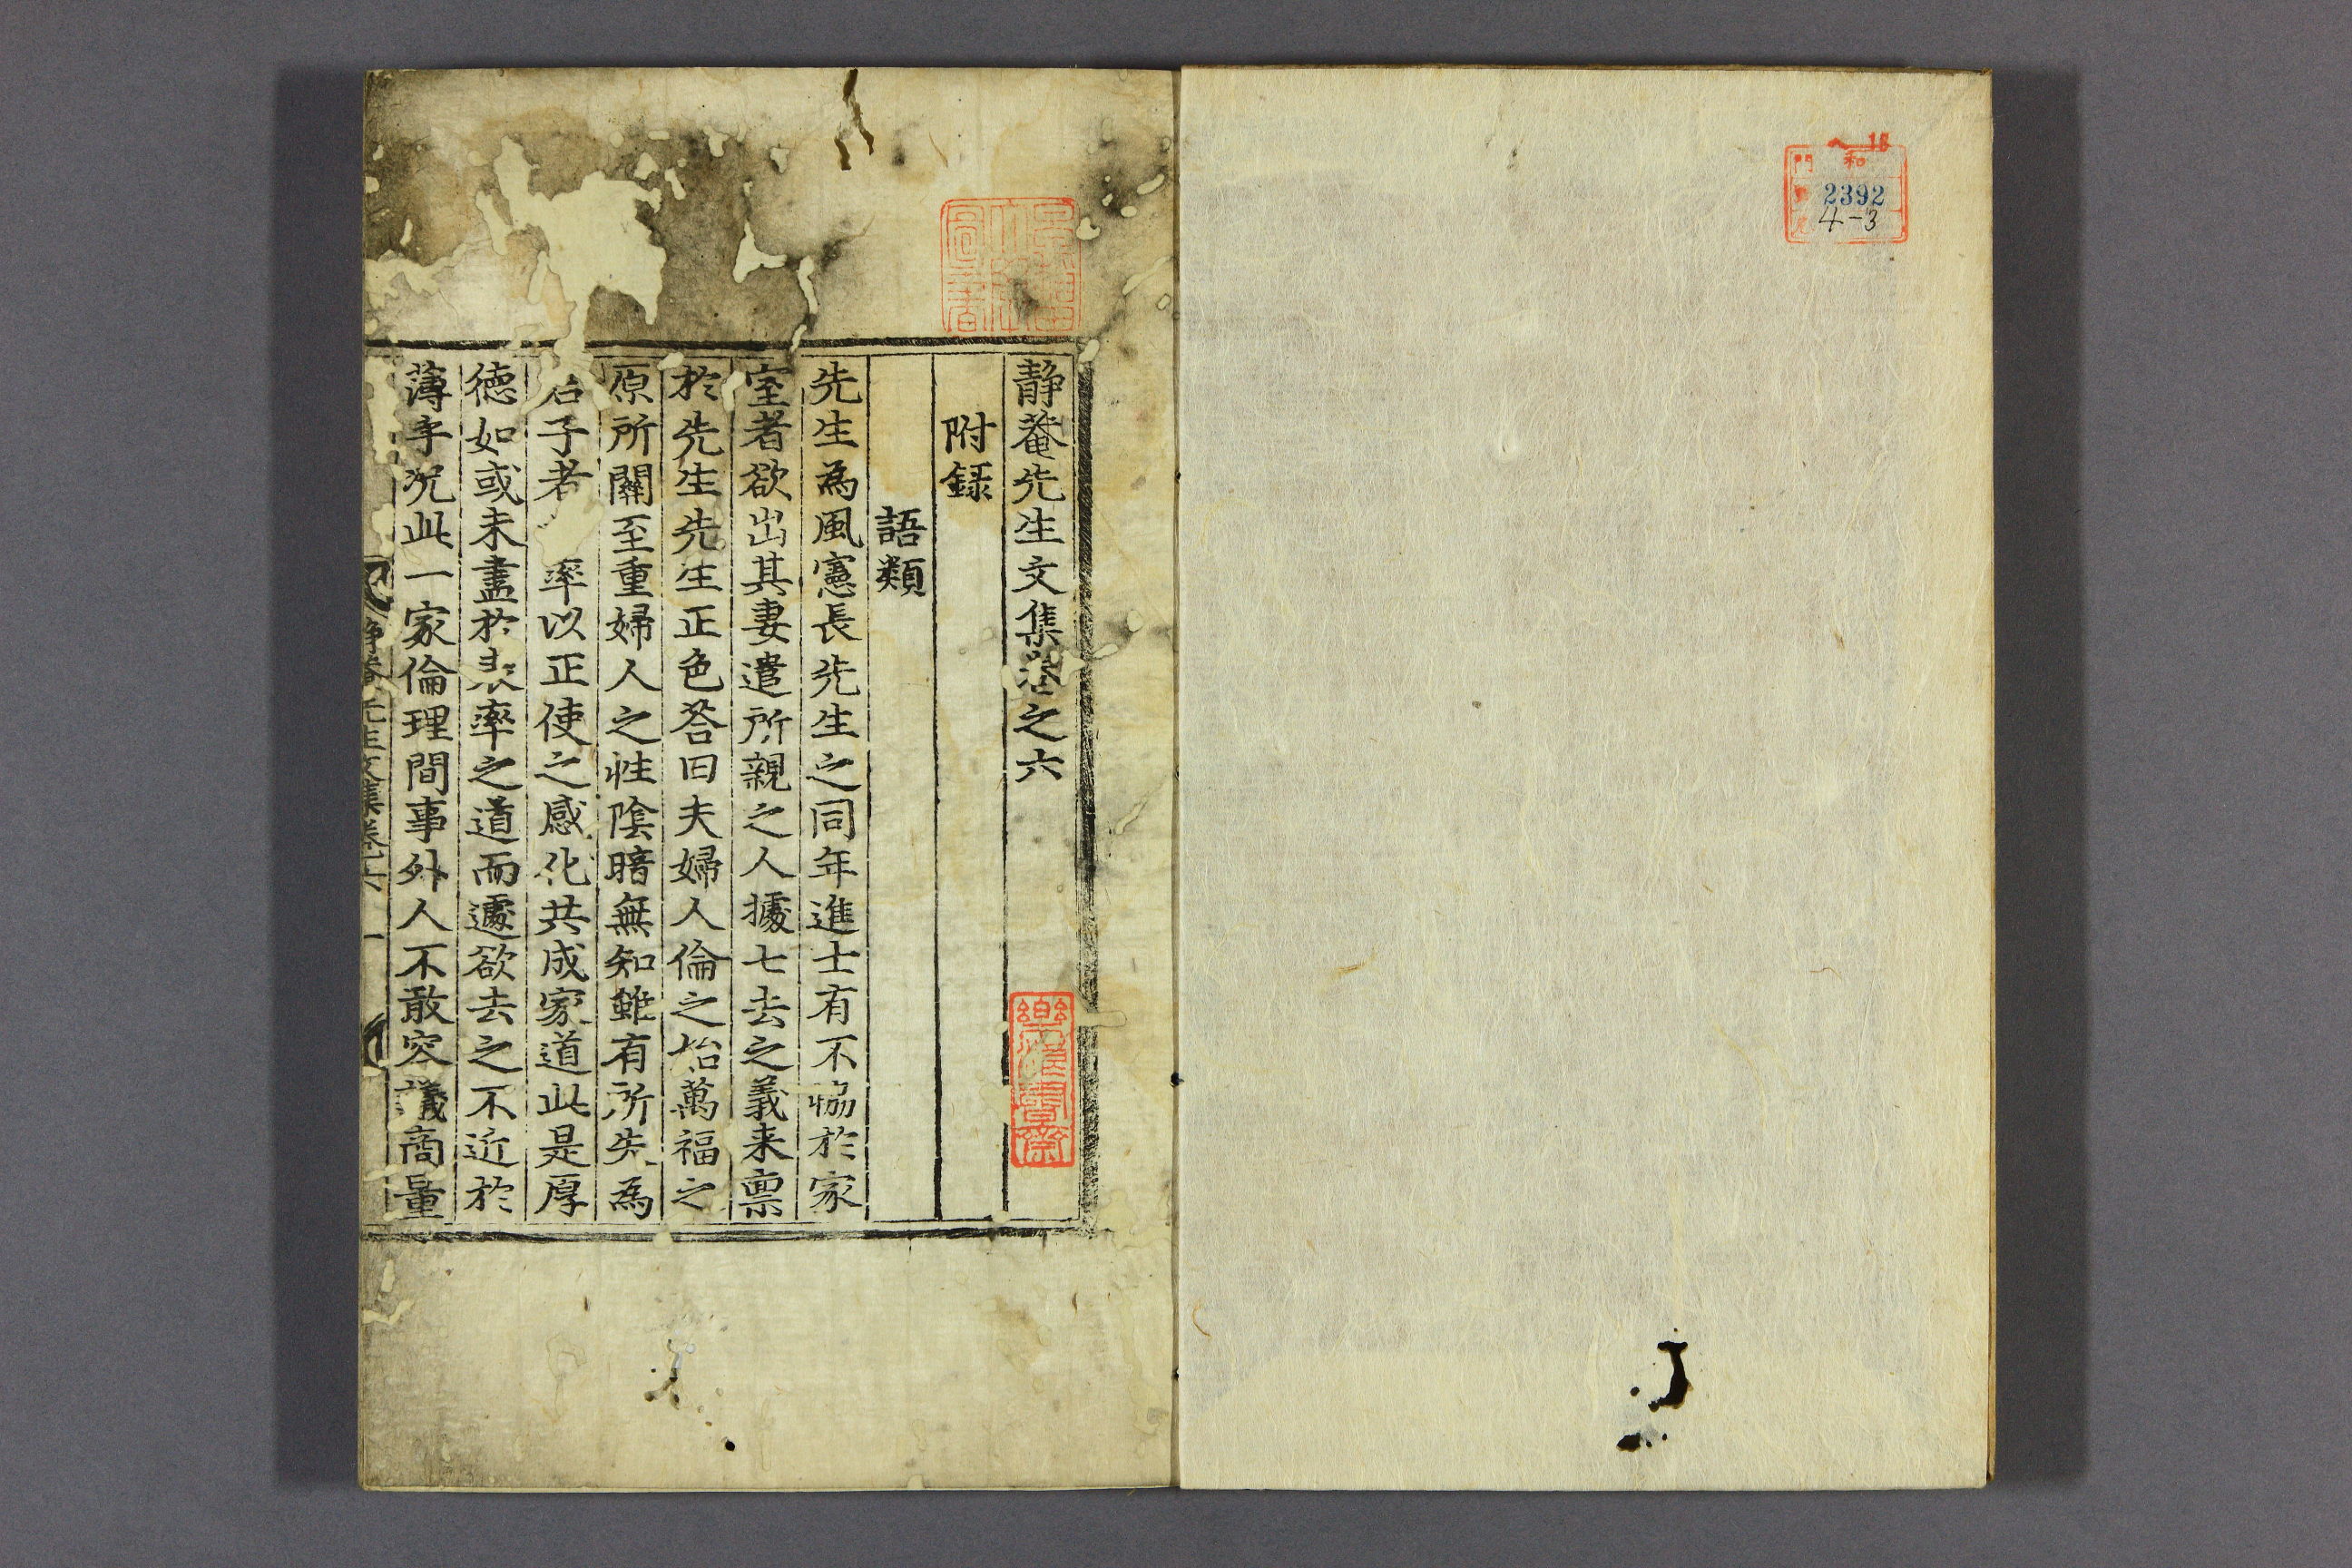 へ 18
和
門
2392
4-3
靜菴先生文集卷之六
附録
語類
先生為風憲長先生之同年進士有不協於家
室者欲出其妻遣所親之人據七去之義来稟
於先生先生正色答曰夫婦人倫之始萬福之
原所關至重婦人之性陰暗無知雖有所失為
君子者 率以正使之感化共成家道此是厚
德如或未盡於表率之道而遽欲去之不近於
薄乎况此一家倫理間事外人不敢容議商量
静菴先生文集卷之六 一